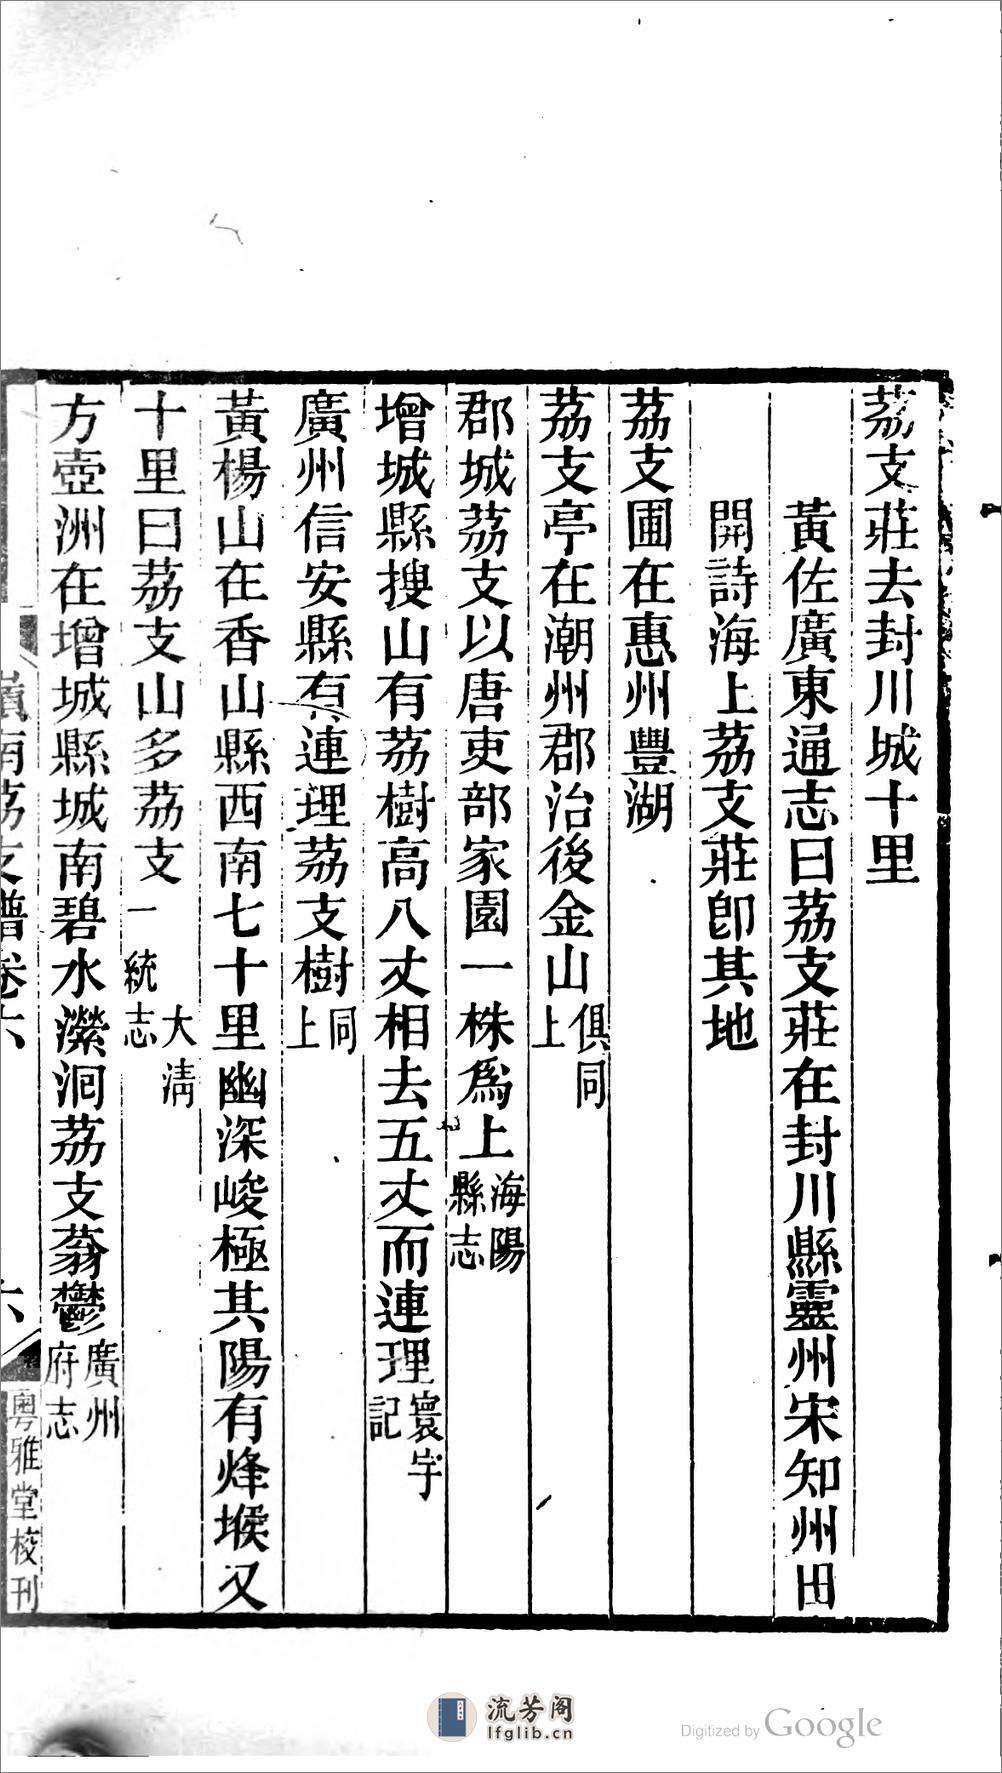 荔支莊去封川城十里
黃佐廣東通志曰荔支莊在封川縣靈州宋知州田
開詩海上荔支莊卽其地
荔支圃在惠州豐湖
荔支亭在潮州郡治後金山俱同上
郡城荔支以唐吏部家園一株爲上海陽縣志
增城縣搜山有荔樹高八丈相去五丈而連理寰宇記
廣州信安縣有連理荔支樹同上
黃楊山在香山縣西南七十里幽深峻極其陽有烽堠又
十里曰荔支山多荔支大淸一統志
方壺洲在增城縣城南碧水瀠洄荔支蓊鬱廣州府志
嶺南荔支譜卷六
六
粵雅堂校刊
流芳阁
lfglib.cn
Digitized by Google